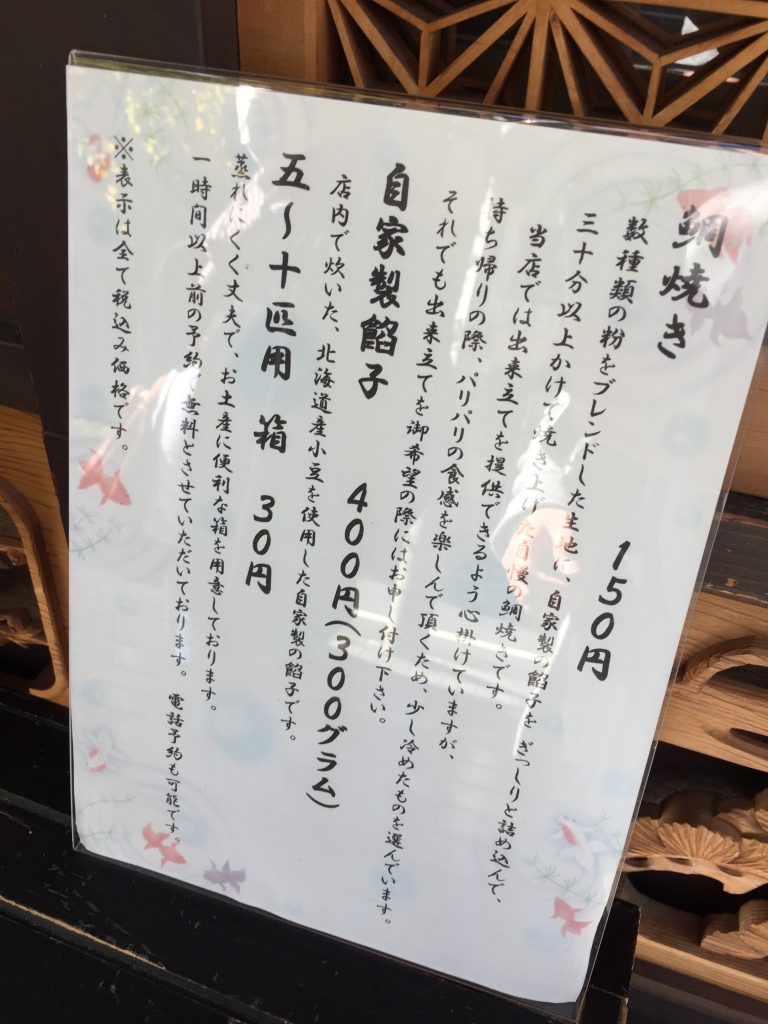 鯛焼き
150円
数種類の粉をブレンドした生地に、自家製の餡子をぎっしりと詰め込んで、
三十分以上かけて焼き上げた自慢の鯛焼きです。
当店では出来立てを提供できるよう心掛けていますが、
持ち帰りの際、パリパリの食感を楽しんで頂くため、少し冷めたものを選んでいます。
それでも出来立てを御希望の際にはお申し付け下さい。
自家製餡子　400円(300グラム)
店内で炊いた、北海道産小豆を使用した自家製の餡子です。
五〜十匹用　箱　30円
蒸れにくく丈夫で、お土産に便利な箱を用意しております。
一時間以上前の予約で無料とさせていただいております。電話予約も可能です。
※表示は全て税込み価格です。